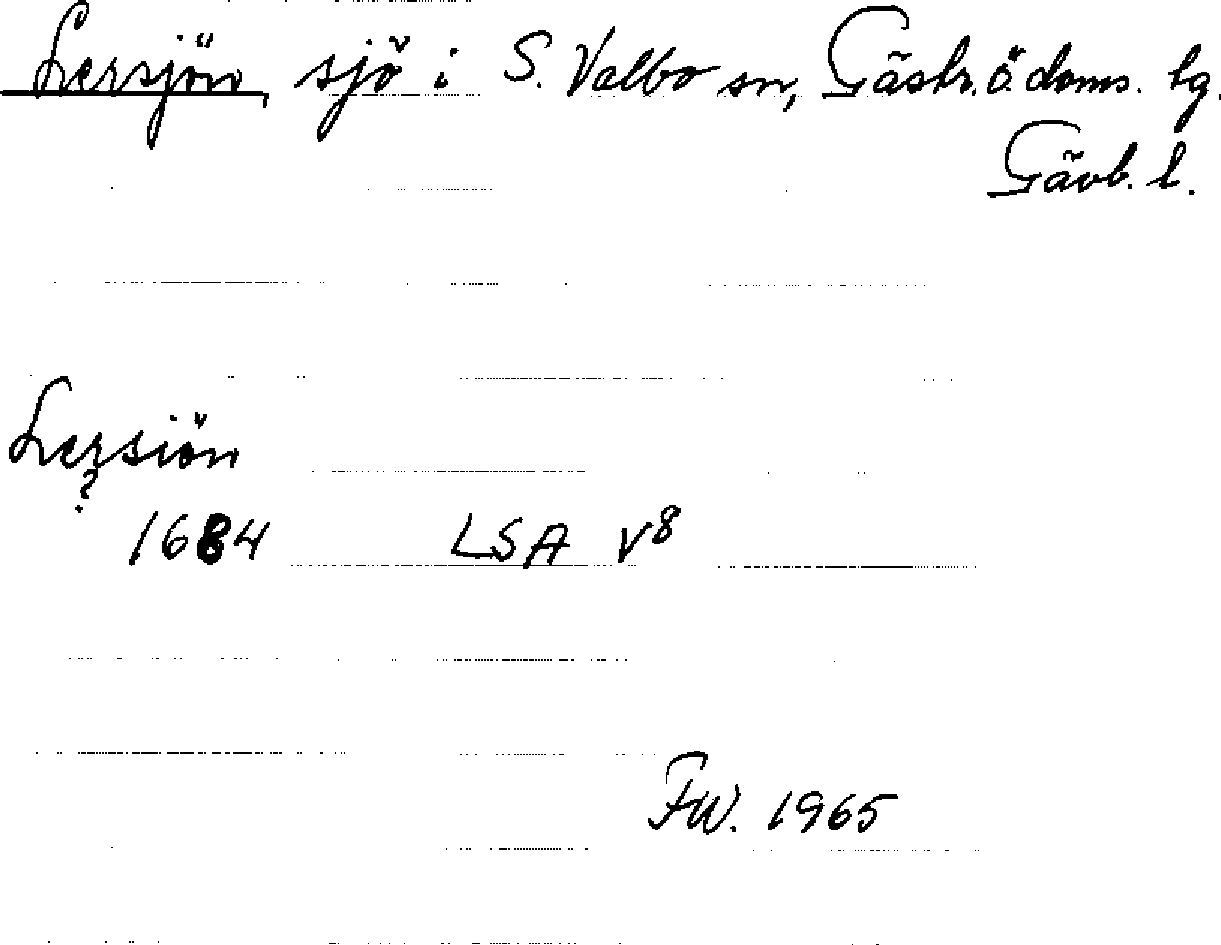 Lersjön, sjö i S. Valbo sn, Gästr. ö. doms. lg.
Gävb. l.
Lersiön
?
1684 LSA V⁸
FW. 1965